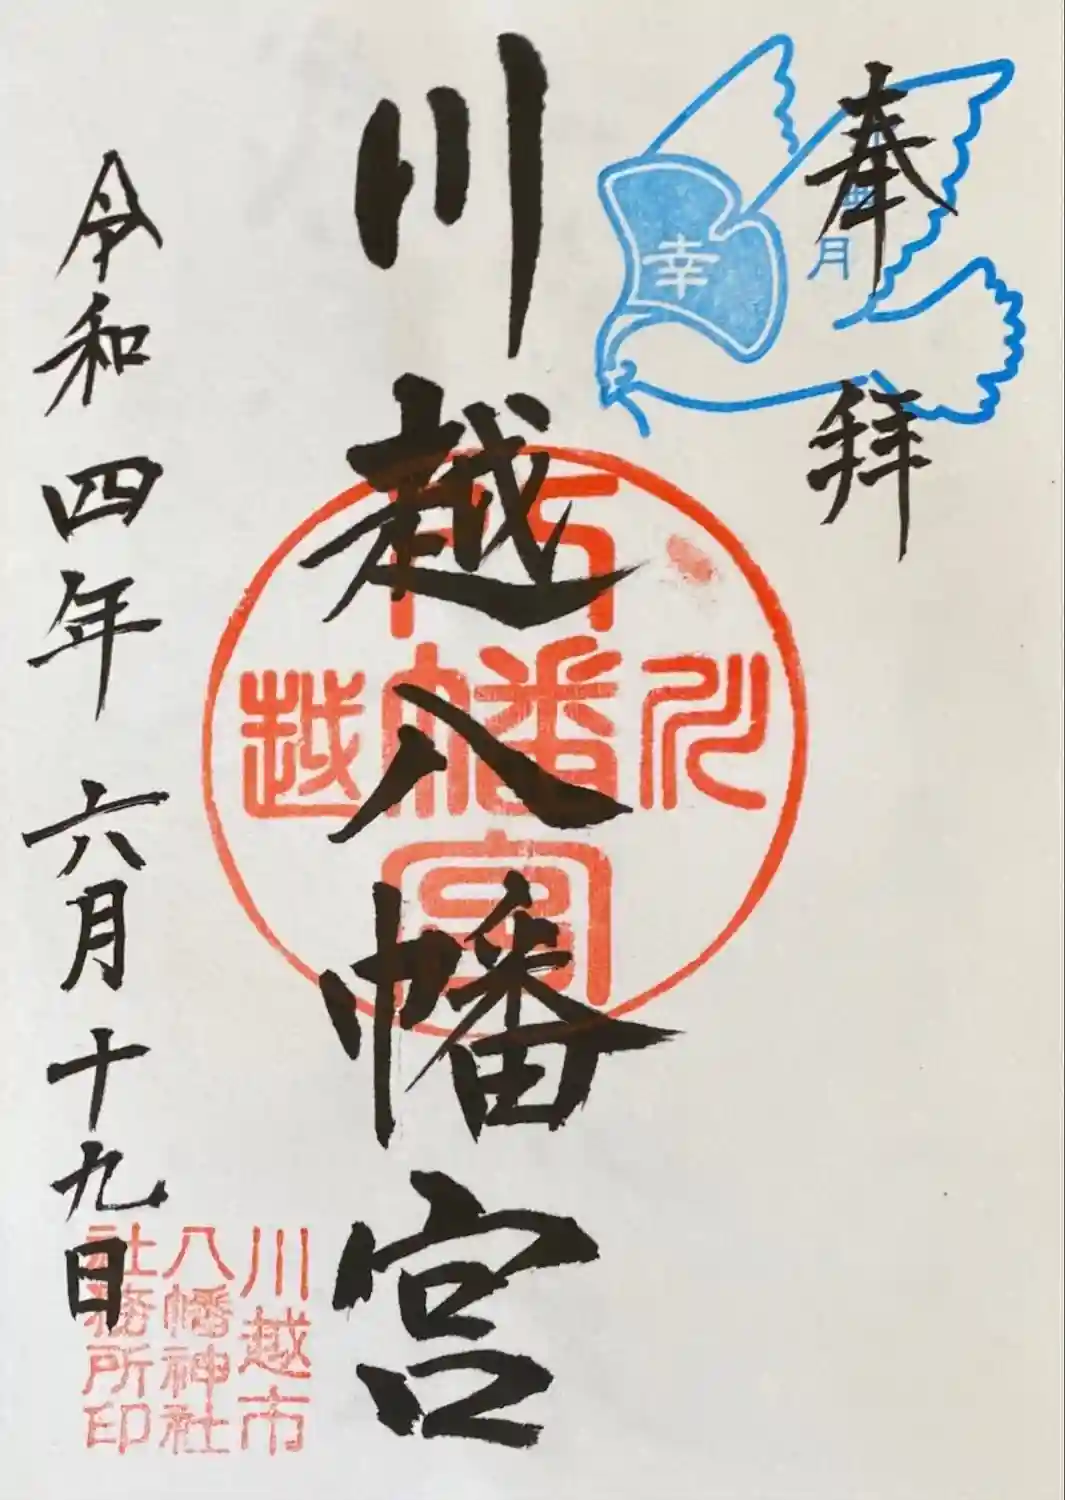 奉拝
幸
月
川越八幡宮
川
八幡宮
越
令和四年六月十九日
川越市
八幡神社
社務所印